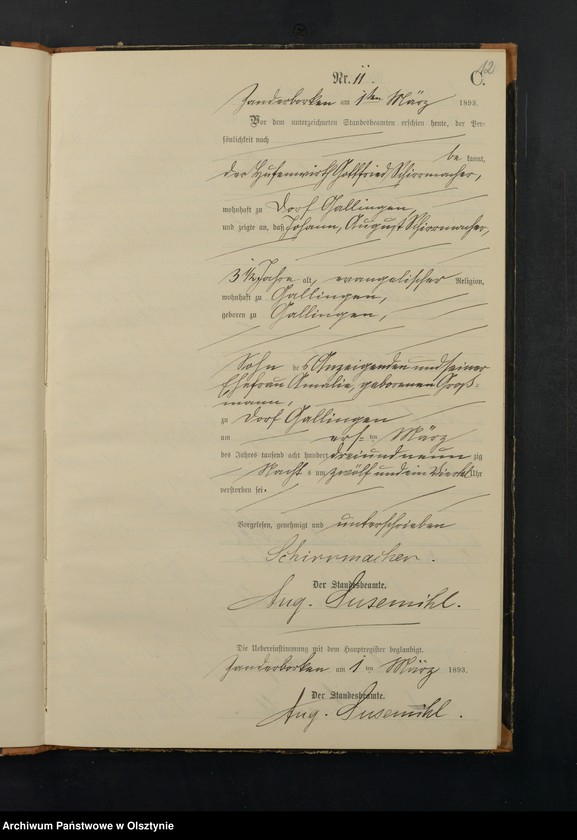 12
Nr. 11.
C.
Janderborken am 1ten März 1893.
Vor dem unterzeichneten Standesbeamten erschien heute, der Per-
sönlichkeit nach
be kannt,
der Hufenwirth Gottfried Schirrmacher,
wohnhaft zu Dorf Gallingen,
und zeigte an, daß Johann, August Schirrmacher,
3 1/2 Jahre alt, evangelischer Religion,
wohnhaft zu Gallingen,
geboren zu Gallingen,
Sohn des Anzeigenden und seiner
Ehefrau Amalie, geborenen Groß-
mann,
zu Dorf Gallingen
am ersten März
des Jahres tausend acht hundert dreiundneunzig
Nachts um zwölf und ein Viertel Uhr
verstorben sei.
Vorgelesen, genehmigt und unterschrieben
Schirrmacher.
Der Standesbeamte.
Aug. Susemihl.
Die Uebereinstimmung mit dem Hauptregister beglaubigt.
Janderborken am 1ten März 1893.
Der Standesbeamte.
Aug. Susemihl.
Archiwum Państwowe w Olsztynie